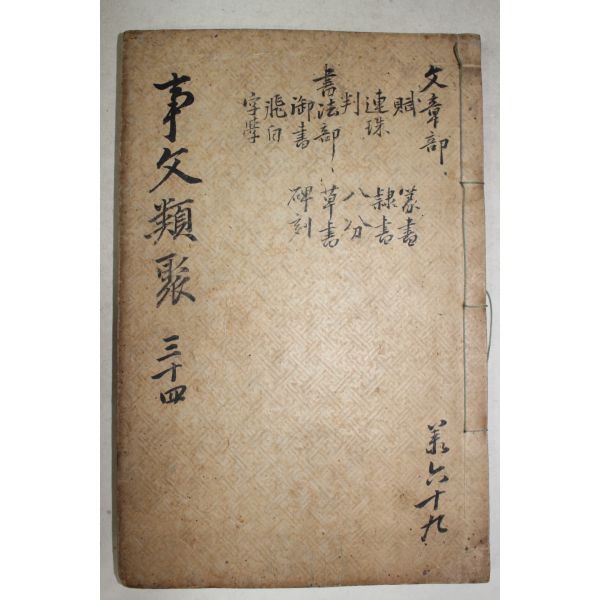 文章部
賦
連珠
判
書法部
御書
飛白
字學
篆書
隷書
八分
草書
碑刻
事文類聚 三十四
六十九